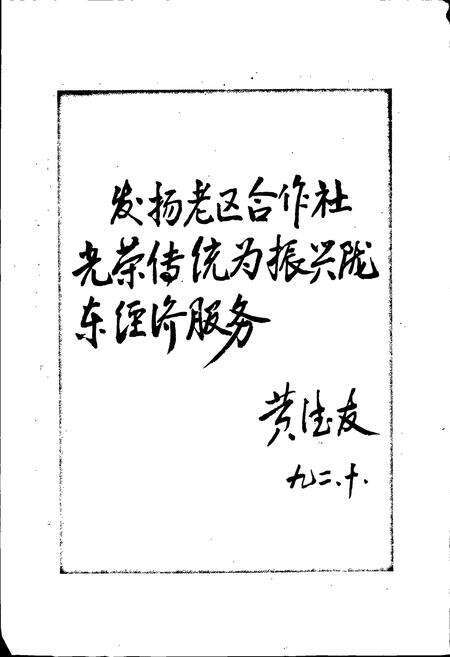 发扬老区合作社
光荣传统为振兴陇
东经济服务
黄法友
九二.十.